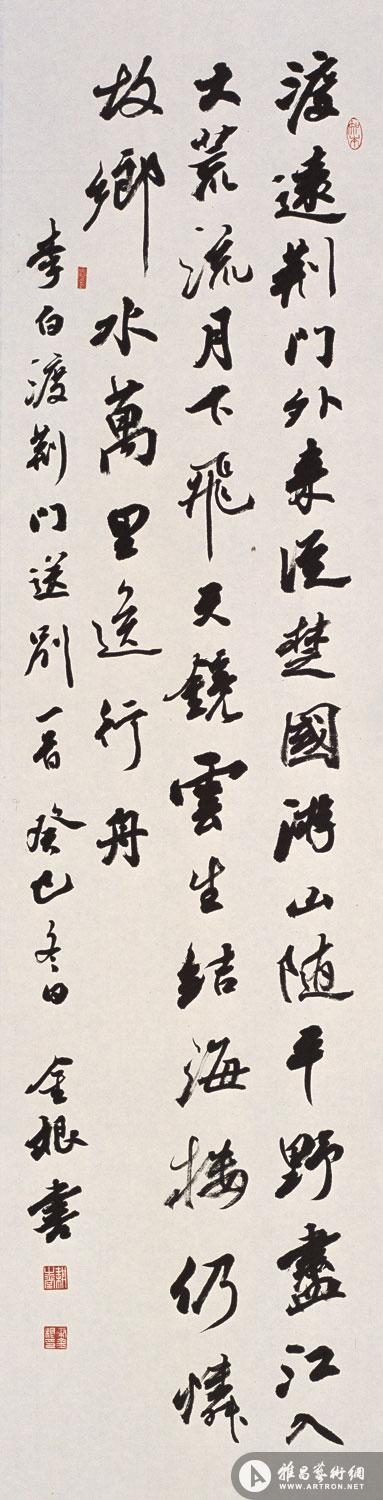 渡遠荆門外来從楚國游山随平野盡江入
大荒流月下飛天鏡雲生結海楼仍憐
故鄉水萬里送行舟
李白渡荆門送别一首 癸巳冬日 金根書
雅昌藝術網
WWW.ARTRON.NET